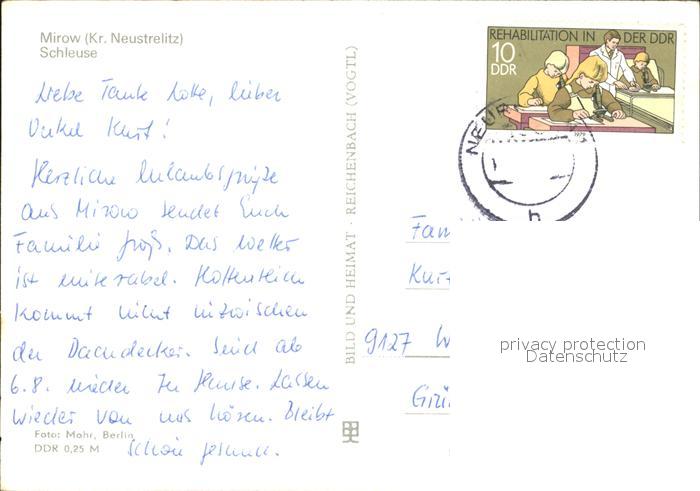 Mirow (Kr. Neustrelitz)
Schleuse
REHABILITATION IN DER DDR
10
DDR
1979
NEUS
h
Liebe Tante Lotte, lieber
Onkel Kurt!
Herzliche Urlaubsgrüße
aus Mirow sendet Euch
Familie Groß. Das Wetter
ist miserabel. Hoffentlich
kommt nicht inzwischen
der Dachdecker. Sind ab
6.8. wieder zu Hause. Lassen
wieder von uns hören. Bleibt
schön gesund.
Foto: Mohr, Berlin
DDR 0,25 M
BILD UND HEIMAT · REICHENBACH (VOGTL)
Fam
Kurt
9127 W
Grü
privacy protection
Datenschutz